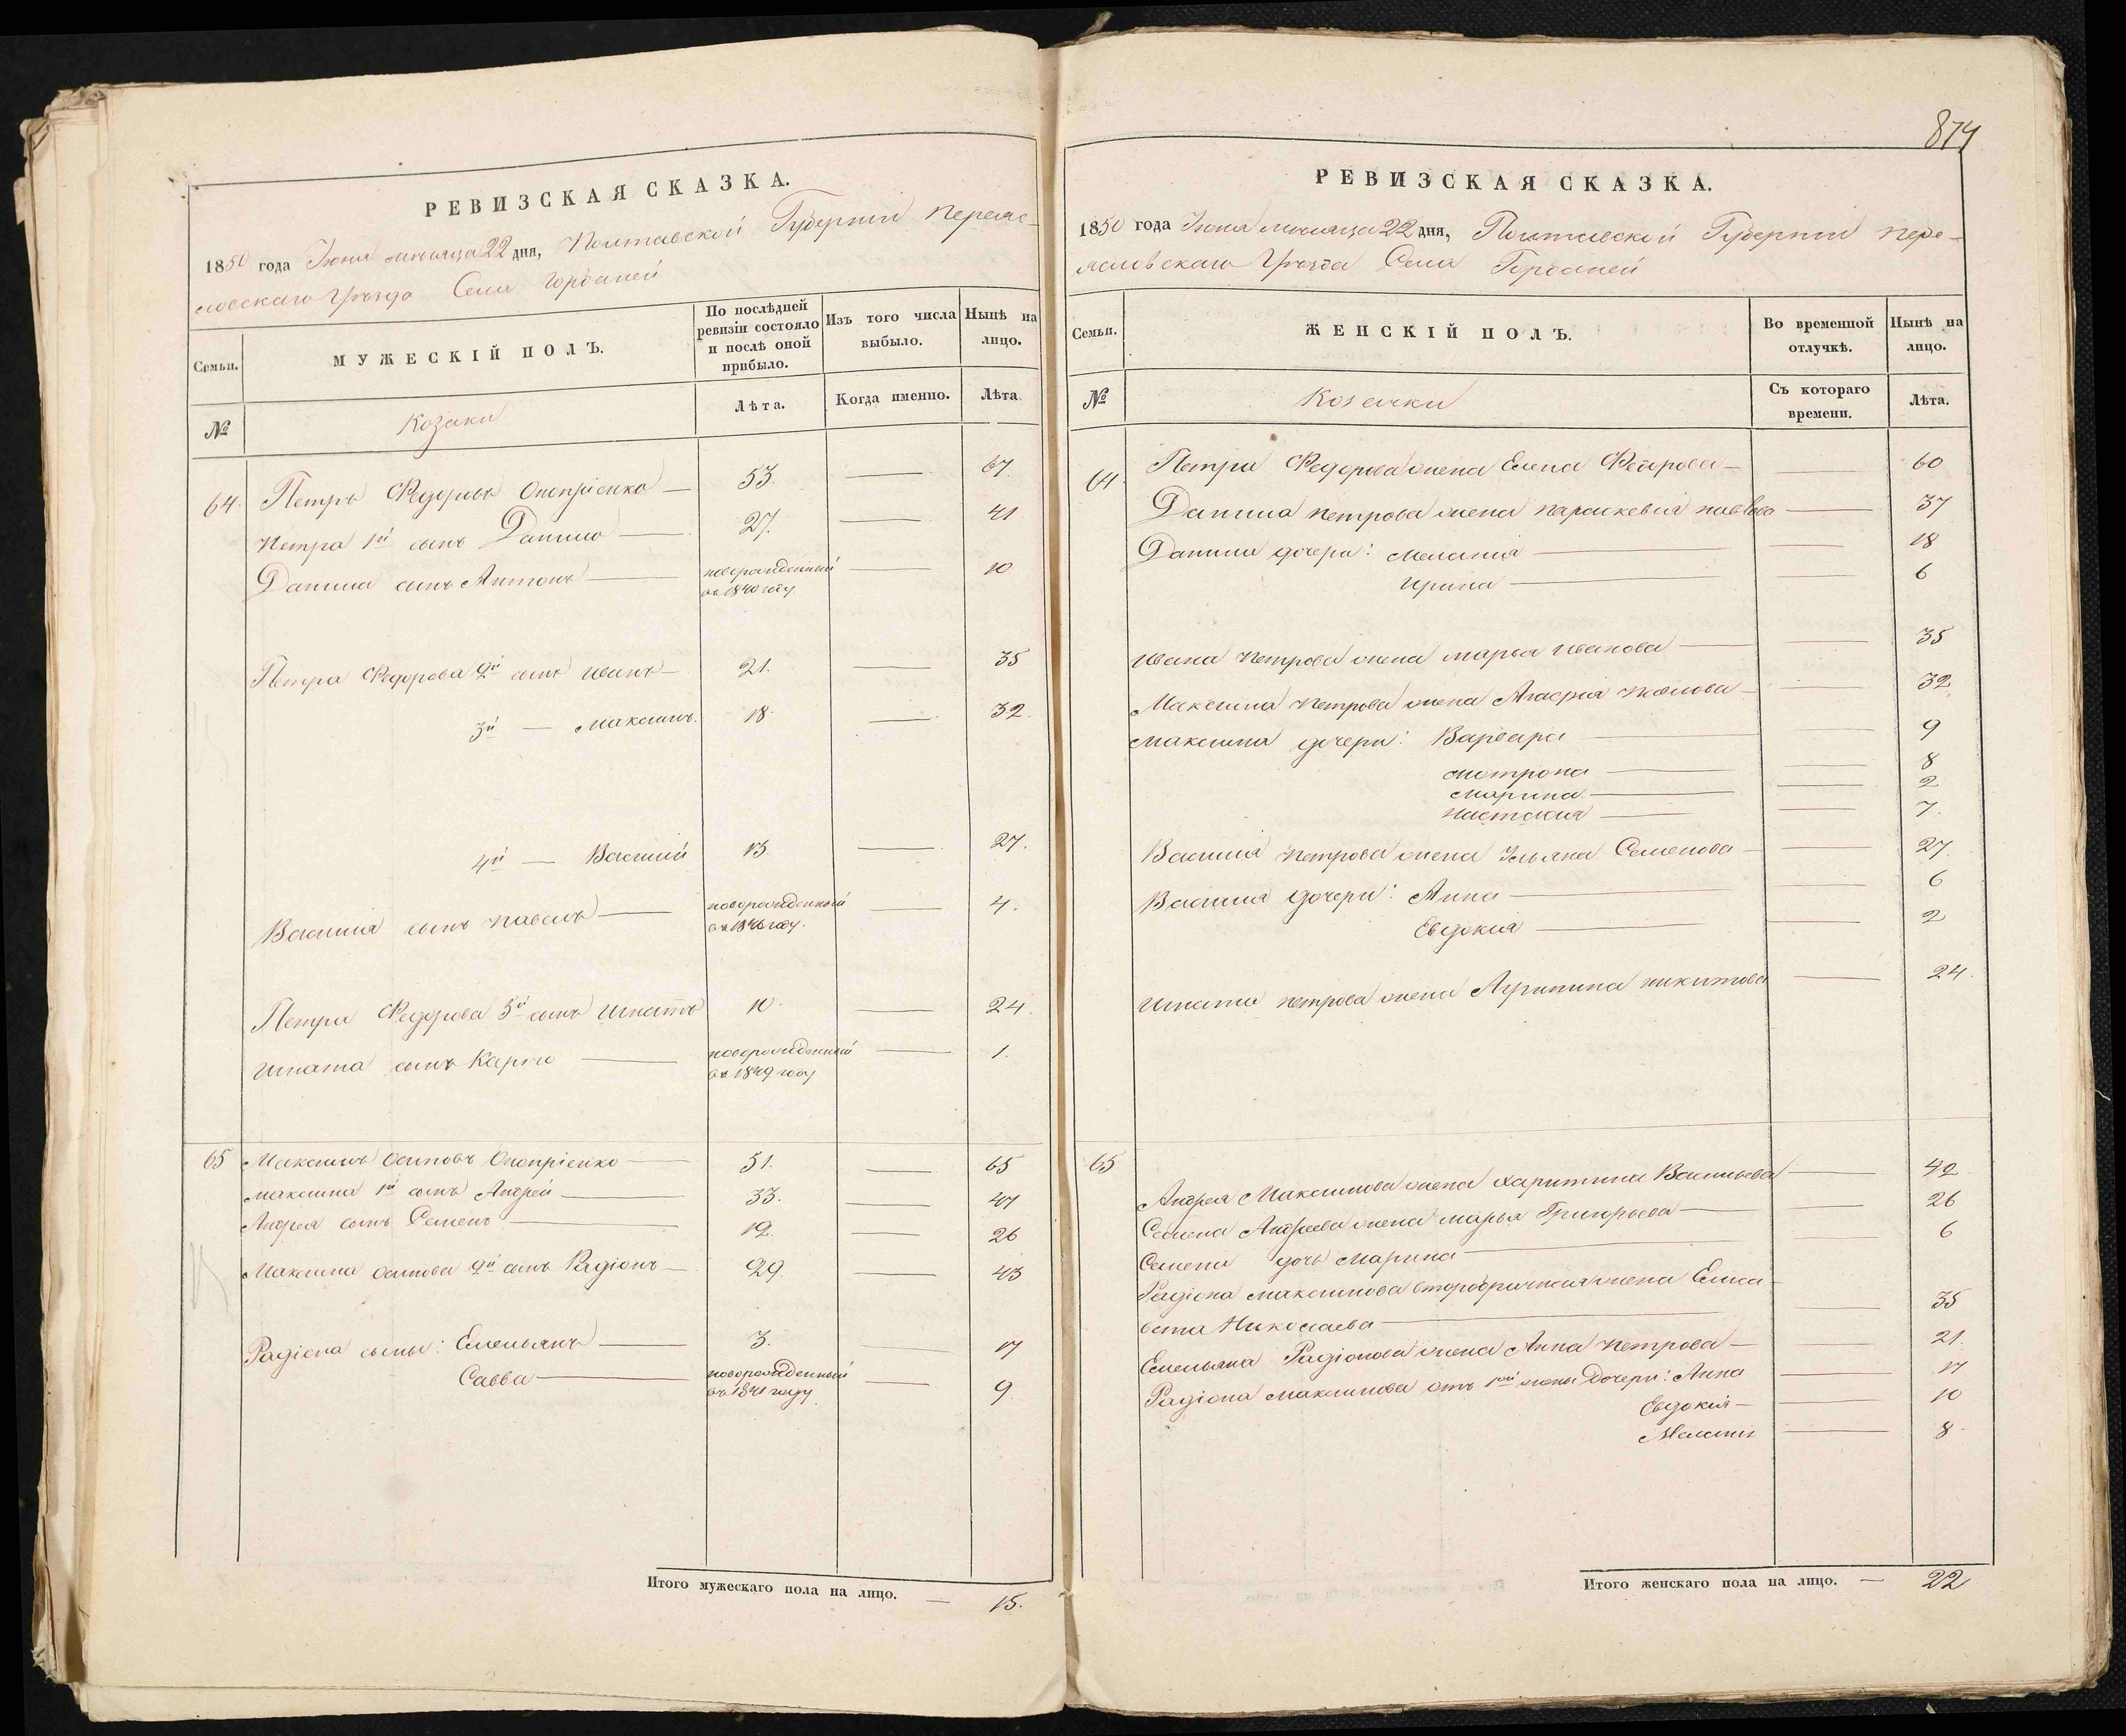 РЕВИЗСКАЯ СКАЗКА.
1850 года Июня месяца 22 дня, Полтавской Губернии Переяс-
ловскаго Уѣзда Села Горбаней
Семьи.
МУЖЕСКІЙ ПОЛЪ.
По послѣдней ревизіи состояло и послѣ оной прибыло.
Изъ того числа выбыло.
Нынѣ на лицо.
№
Козаки
Лѣта.
Когда именно.
Лѣта
64. Петръ Федоровъ Оноприенко — 53. — 67
Петра 1й сынъ Данило — 27. — 41
Данила сынъ Антонъ — новорожденный въ 1840 году — 10
Петра Федорова 2й сынъ Иванъ — 21. — 35
3й — Максимъ. 18. — 32.
4й — Василий 13 — 27.
Василия сынъ Павелъ — новорожденный въ 1846 году. — 4.
Петра Федорова 5й сынъ Игнатъ 10. — 24.
Игната сынъ Карпо — новорожденный въ 1849 году — 1.
65 Максимъ Осиповъ Оноприенко — 51. — 65
Максима 1й сынъ Андрей — 33. — 47
Андрея сынъ Семенъ — 12. — 26
Максима Осипова 2й сынъ Радіонъ — 29 — 43
Радіона сыны: Емельянъ — 3. — 17
Савва — новорожденный въ 1841 году — 9
Итого мужескаго пола на лицо. — 15.
874
РЕВИЗСКАЯ СКАЗКА.
1850 года Июня месяца 22 дня, Полтавской Губернии Пере-
ясловскаго Уѣзда Села Горбаней
Семьи.
ЖЕНСКІЙ ПОЛЪ.
Во временной отлучкѣ.
Нынѣ на лицо.
№
Козачки
Съ котораго времени.
Лѣта.
64. Петра Федорова жена Елена — — 60
Данила Петрова жена Параскевия Павлова — 37
Данила дочери: Мелания — — 18
Ирина — — 6
Ивана Петрова жена Марья Иванова — — 35
Максима Петрова жена — — 32
Максима дочери: Варвара — — 9
Мотрона — — 8
Марина. — — 2
Настасия — — 7.
Василия Петрова жена Ульяна Семенова — — 27.
Василия дочери: Анна — — 6
Евдокия — — 2
Игната Петрова жена Агрипина Никитова — 24.
65 Андрея Максимова жена Харитина Васильева — 42
Семена Андреева жена Марья Григорьева — — 26
Семена дочь Марина — — 6
Радіона Максимова второбрачная жена Елиса-
вета Николаева — — 35
Емельяна Радіонова жена Анна Петрова — 21.
Радіона Максимова отъ 1ой жены Дочери: Анна — 17
Евдокия — — 10
Мелания — 8
Итого женскаго пола на лицо. — 22